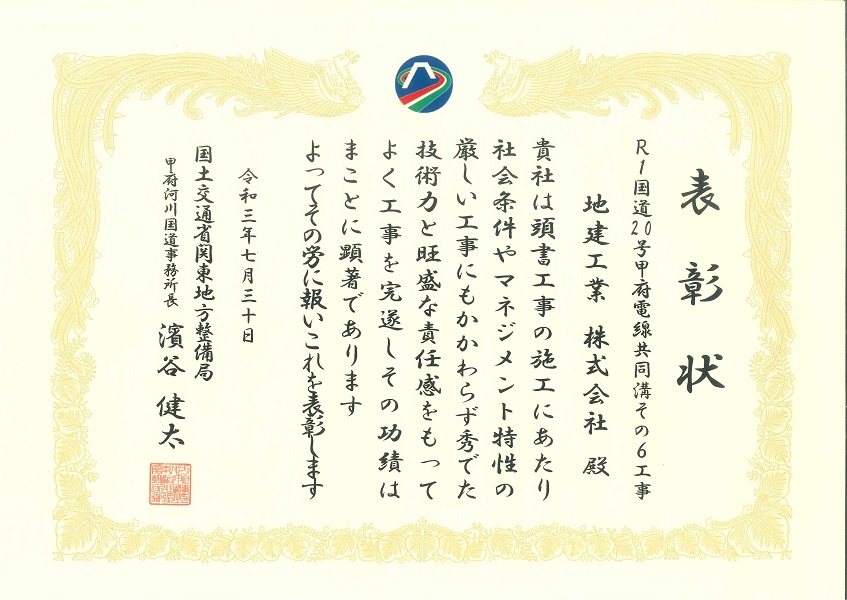 表彰状
R1国道20号甲府電線共同溝その6工事
地建工業 株式会社 殿
貴社は頭書工事の施工にあたり
社会条件やマネジメント特性の
厳しい工事にもかかわらず秀でた
技術力と旺盛な責任感をもって
よく工事を完遂しその功績は
まことに顕著であります
よってその労に報いこれを表彰します
令和三年七月三十日
国土交通省関東地方整備局
甲府河川国道事務所長 濱谷 健太